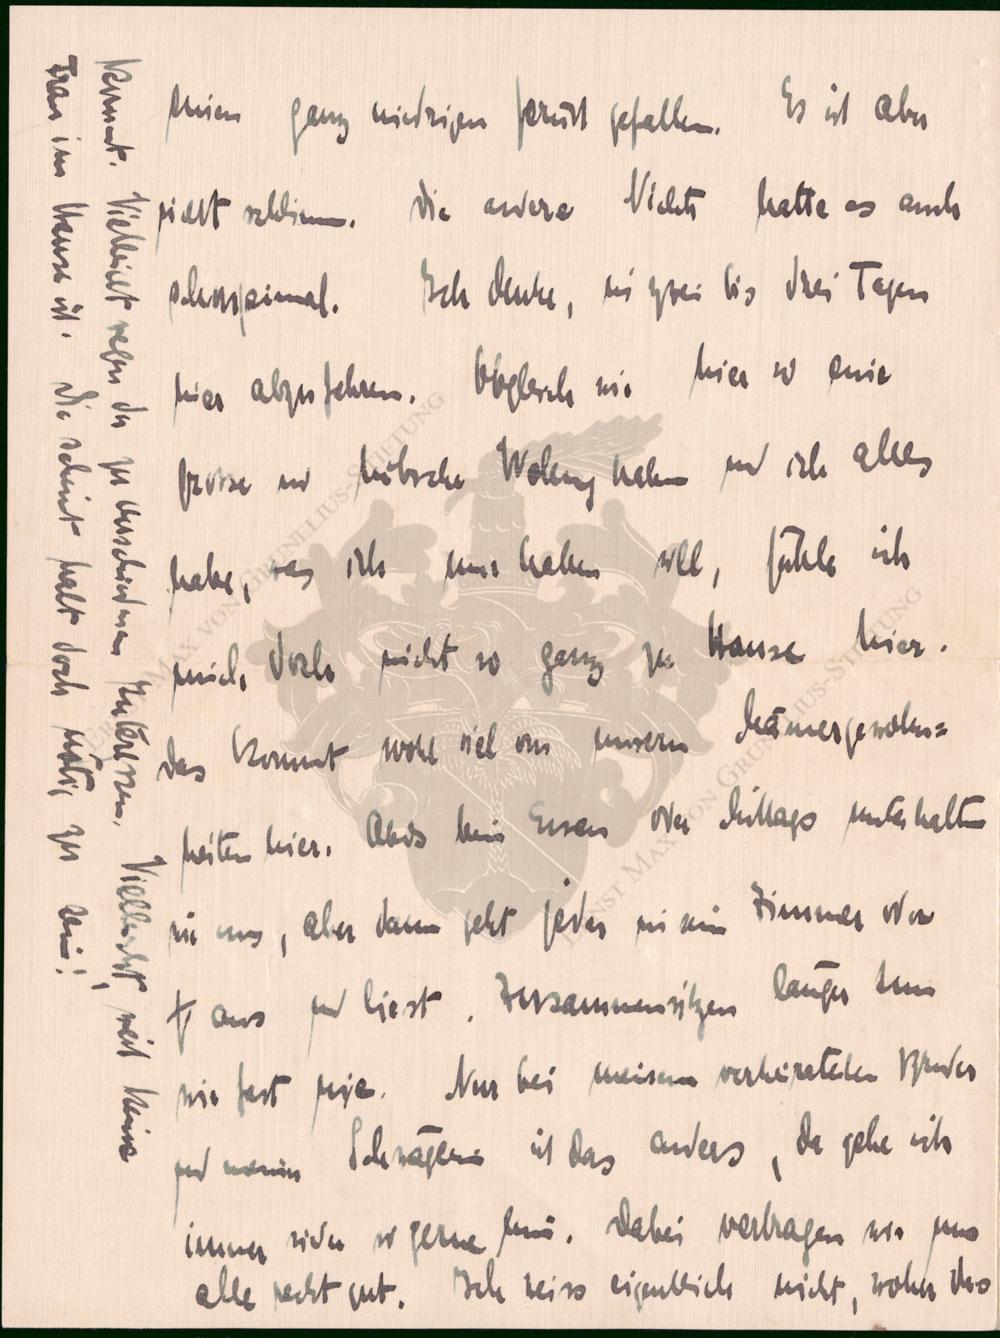 einem ganz niedrigen Gerüst gefallen. Es ist aber
nicht schlimm. Die andere Nichte hatte es auch
schon einmal. Ich denke, in zwei bis drei Tagen
hier abzufahren. Obgleich wir hier so eine
grosse und hübsche Wohnung haben und ich alles
habe, was ich nur haben will, fühle ich
mich doch nicht so ganz zu Hause hier.
Das kommt wohl viel von unsern
heiten hier. Abds beim Essen oder Mittags unterhalten
wir uns, aber dann geht jeder in sein Zimmer oder
aus und liest. Zusammensitzen länger tun
wir fast nie. Nur bei meinem verheirateten Bruder
und meiner Schwägerin ist das anders, da gehe ich
immer wieder so gerne hin. Dabei vertragen wir uns
alle recht gut. Ich weiss eigentlich nicht, woher das
kommt. Vielleicht wegen der zu verschiedenen Interessen. Vielleicht weil keine
Frau im Hause ist. Die scheint halt doch nötig zu sein!
ERNST MAX VON GRUNELIUS-STIFTUNG
ERNST MAX VON GRUNELIUS-STIFTUNG